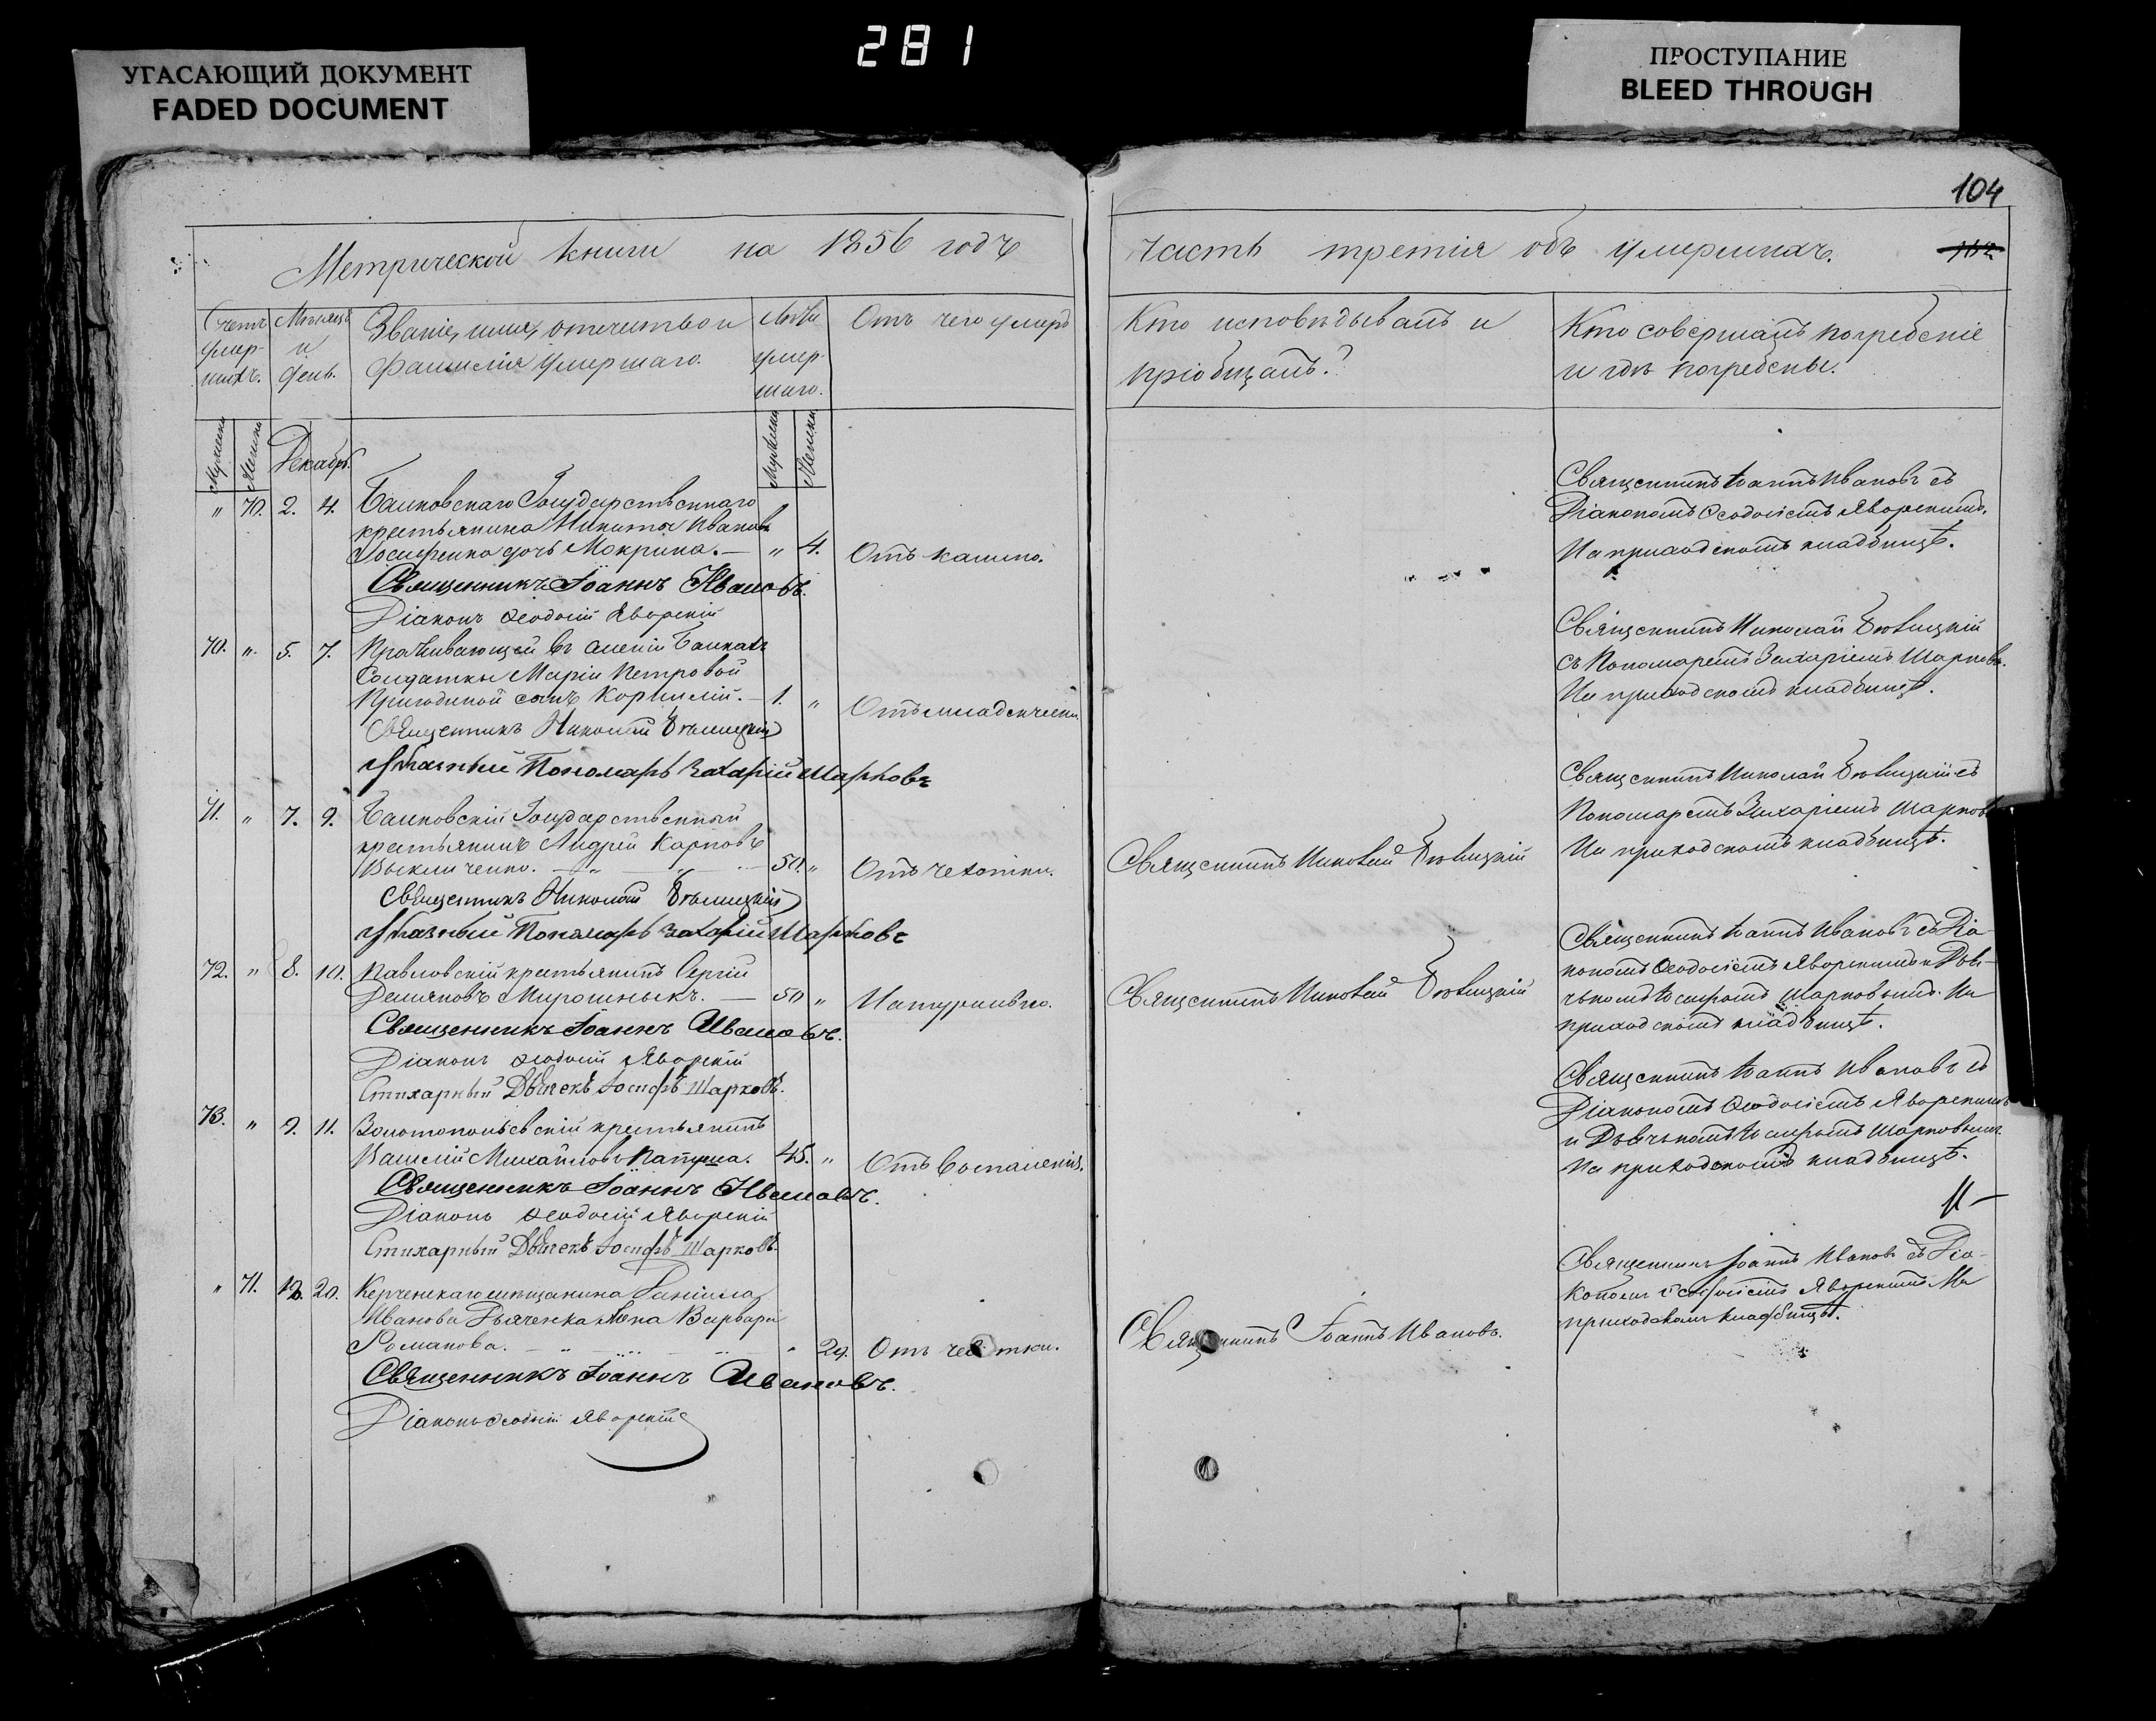 281
УГАСАЮЩИЙ ДОКУМЕНТ
FADED DOCUMENT
ПРОСТУПАНИЕ
BLEED THROUGH
104
Метрической книги на 1856 годъ
часть третія объ умершихъ.
Счетъ умер-шихъ.
Мѣсяцъ и день.
Званіе, имя, отчество и фамилія умершаго.
Лѣта умер-шаго.
Отъ чего умеръ
Кто исповѣдывалъ и пріобщалъ?
Кто совершалъ погребеніе и гдѣ погребены.
Мужеска
Женска
Декабрь.
Мужеска
Женска
" 70. 2. 4. Балковскаго Государственнаго
крестьянина Никиты Иванова
дочь Мокрина. — " 4. Отъ кашлю.
Священникъ Іоаннъ Ивановъ.
Діаконъ Ѳеодосій Яворскій
Священникъ Іоаннъ Ивановъ съ
Діакономъ Ѳеодосіемъ Яворскимъ.
На приходскомъ кладбищѣ.
70. " 5. 7. Проживающей въ селеніи Балкахъ
Солдатки Маріи Петровой
сынъ Корнилій. — 1. " Отъ младенческ
Священникъ Николай
Пономарь Захарій Шарковъ
Священникъ Николай
съ Пономаремъ Захаріемъ Шарковъ.
На приходскомъ кладбищѣ.
71. " 7. 9. Балковскій Государственный
крестьянинъ Андрей Карповъ
50. " Отъ чехотки.
Священникъ Николай
Пономарь Захарій Шарковъ
Священникъ Николай
Священникъ Николай съ
Пономаремъ Захаріемъ Шарков
На приходскомъ кладбищѣ.
72. " 8. 10. Павловскій крестьянинъ Сергій
Демяновъ Мирошныкъ. — 50 " Натурально.
Священникъ Іоаннъ Ивановъ.
Діаконъ Ѳеодосій Яворскій
Стихарный Дьячекъ Іосифъ Шарковъ.
Священникъ Николай
Священникъ Іоаннъ Ивановъ съ Діа-
кономъ Ѳеодосіемъ Яворскимъ и Дья-
чькомъ Іосифомъ Шарковымъ. На
приходскомъ кладбищѣ.
73. " 9. 11. Золотопольевскій крестьянинъ
Василій Михайловъ Папуша. 45. " Отъ воспаленія.
Священникъ Іоаннъ Ивановъ.
Діаконъ Ѳеодосій Яворскій
Стихарный Дьячекъ Іосифъ Шарковъ.
Священникъ Іоаннъ Ивановъ съ
Діакономъ Ѳеодосіемъ Яворскимъ
и Дьячькомъ Іосифомъ Шарковымъ
На приходскомъ кладбищѣ.
" 71. 18. 20. Керченскаго мѣщанина Даніила
Иванова Дьяченка жена Варвара
Романова. " 29. Отъ чехотки.
Священникъ Іоаннъ Ивановъ.
Діаконъ Ѳеодосій Яворскій
Священникъ Іоаннъ Ивановъ.
Священникъ Іоаннъ Ивановъ съ Діа-
кономъ Ѳеодосіемъ Яворскимъ На
приходскомъ кладбищѣ.